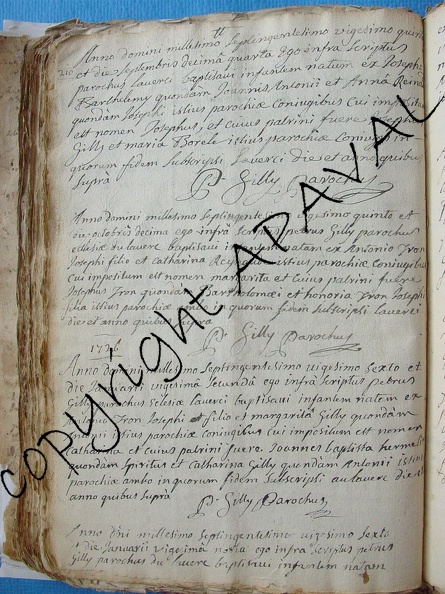 Anno domini millesimo septingentesimo vigesimo quin
210 et die septembris decima quarta ego infra scriptus
parochus laverci baptisavi infantem natum ex Josepho
Barthelemy quondam Joannis Antonii et Anna Reina
quondam Josephi istius parochiæ coniugibus cui imposit
est nomen Josephus, et cuius patrini fuere Joseph
Gilly et maria Borele istius parochiæ coniug
quorum fidem subscripsi laverci die et anno quibus
supra
Pr Gilly Parochus
Anno domini millesimo septingente vigesimo quinto et
die octobris decima ego infra scriptus petrus Gilly parochus
ecclesiæ du lavere baptisavi infantem natam ex Antonio Tron
Josephi filio et Catharina istius parochiæ coniugibus
cui impositum est nomen margarita et cuius patrini fuere
Josephus Tron quondam Bartholomæi et honoria Tron Josephi
filia istius parochiæ ambo in quorum fidem subscripsi laverci
die et anno quibus supra
Pr Gilly Parochus
1726
Anno domini millesimo septingentesimo vigesimo sexto et
die Januarii vigesima secunda ego infra scriptus petrus
Gilly parochus eclesiæ laverci baptisavi infantem natam ex
Antonio Tron Josephi filio et margarita Gilly quondam
Antonii istius parochiæ coniugibus cui impositum est nomen
Catharina et cuius patrini fuere Joannes baptista hermel
quondam spiritus et Catharina Gilly quondam Antonii istius
parochiæ ambo in quorum fidem subscripsi au lavere die et
anno quibus supra
Pr Gilly Parochus
Anno dñi millesimo septingentesimo vigesimo sexto
et die Januarii vigesima nona ego infra scriptus petrus
Gilly parochus du lavere baptisavi infantem natam
copyright APAVAL